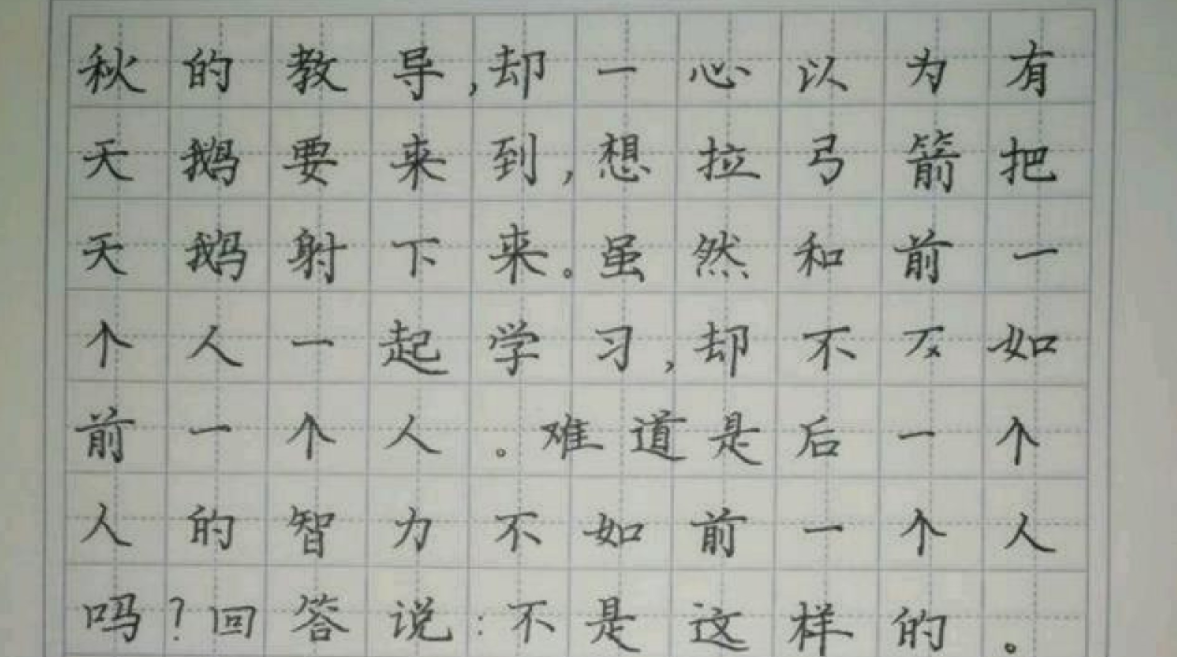 秋的教导,却一心以为有
天鹅要来到,想拉弓箭把
天鹅射下来。虽然和前一
个人一起学习,却不不如
前一个人。难道是后一个
人的智力不如前一个人
吗?回答说:不是这样的。